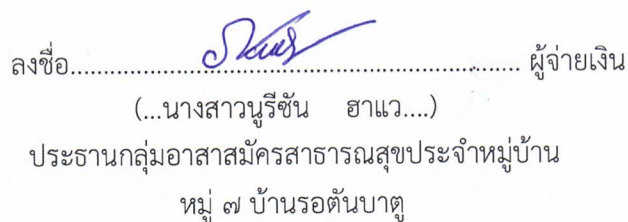 ลงชื่อ............................................................... ผู้จ่ายเงิน
(...นางสาวนูรีซัน ฮาแว....)
ประธานกลุ่มอาสาสมัครสาธารณสุขประจำหมู่บ้าน
หมู่ ๗ บ้านรอตันบาตู